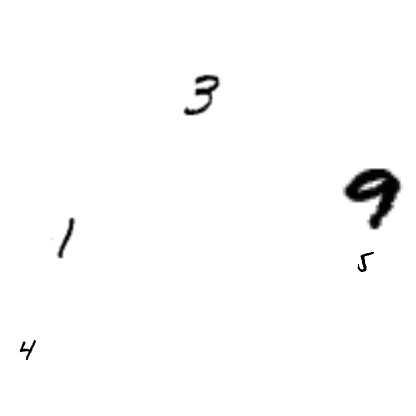 3
9
1
5
4